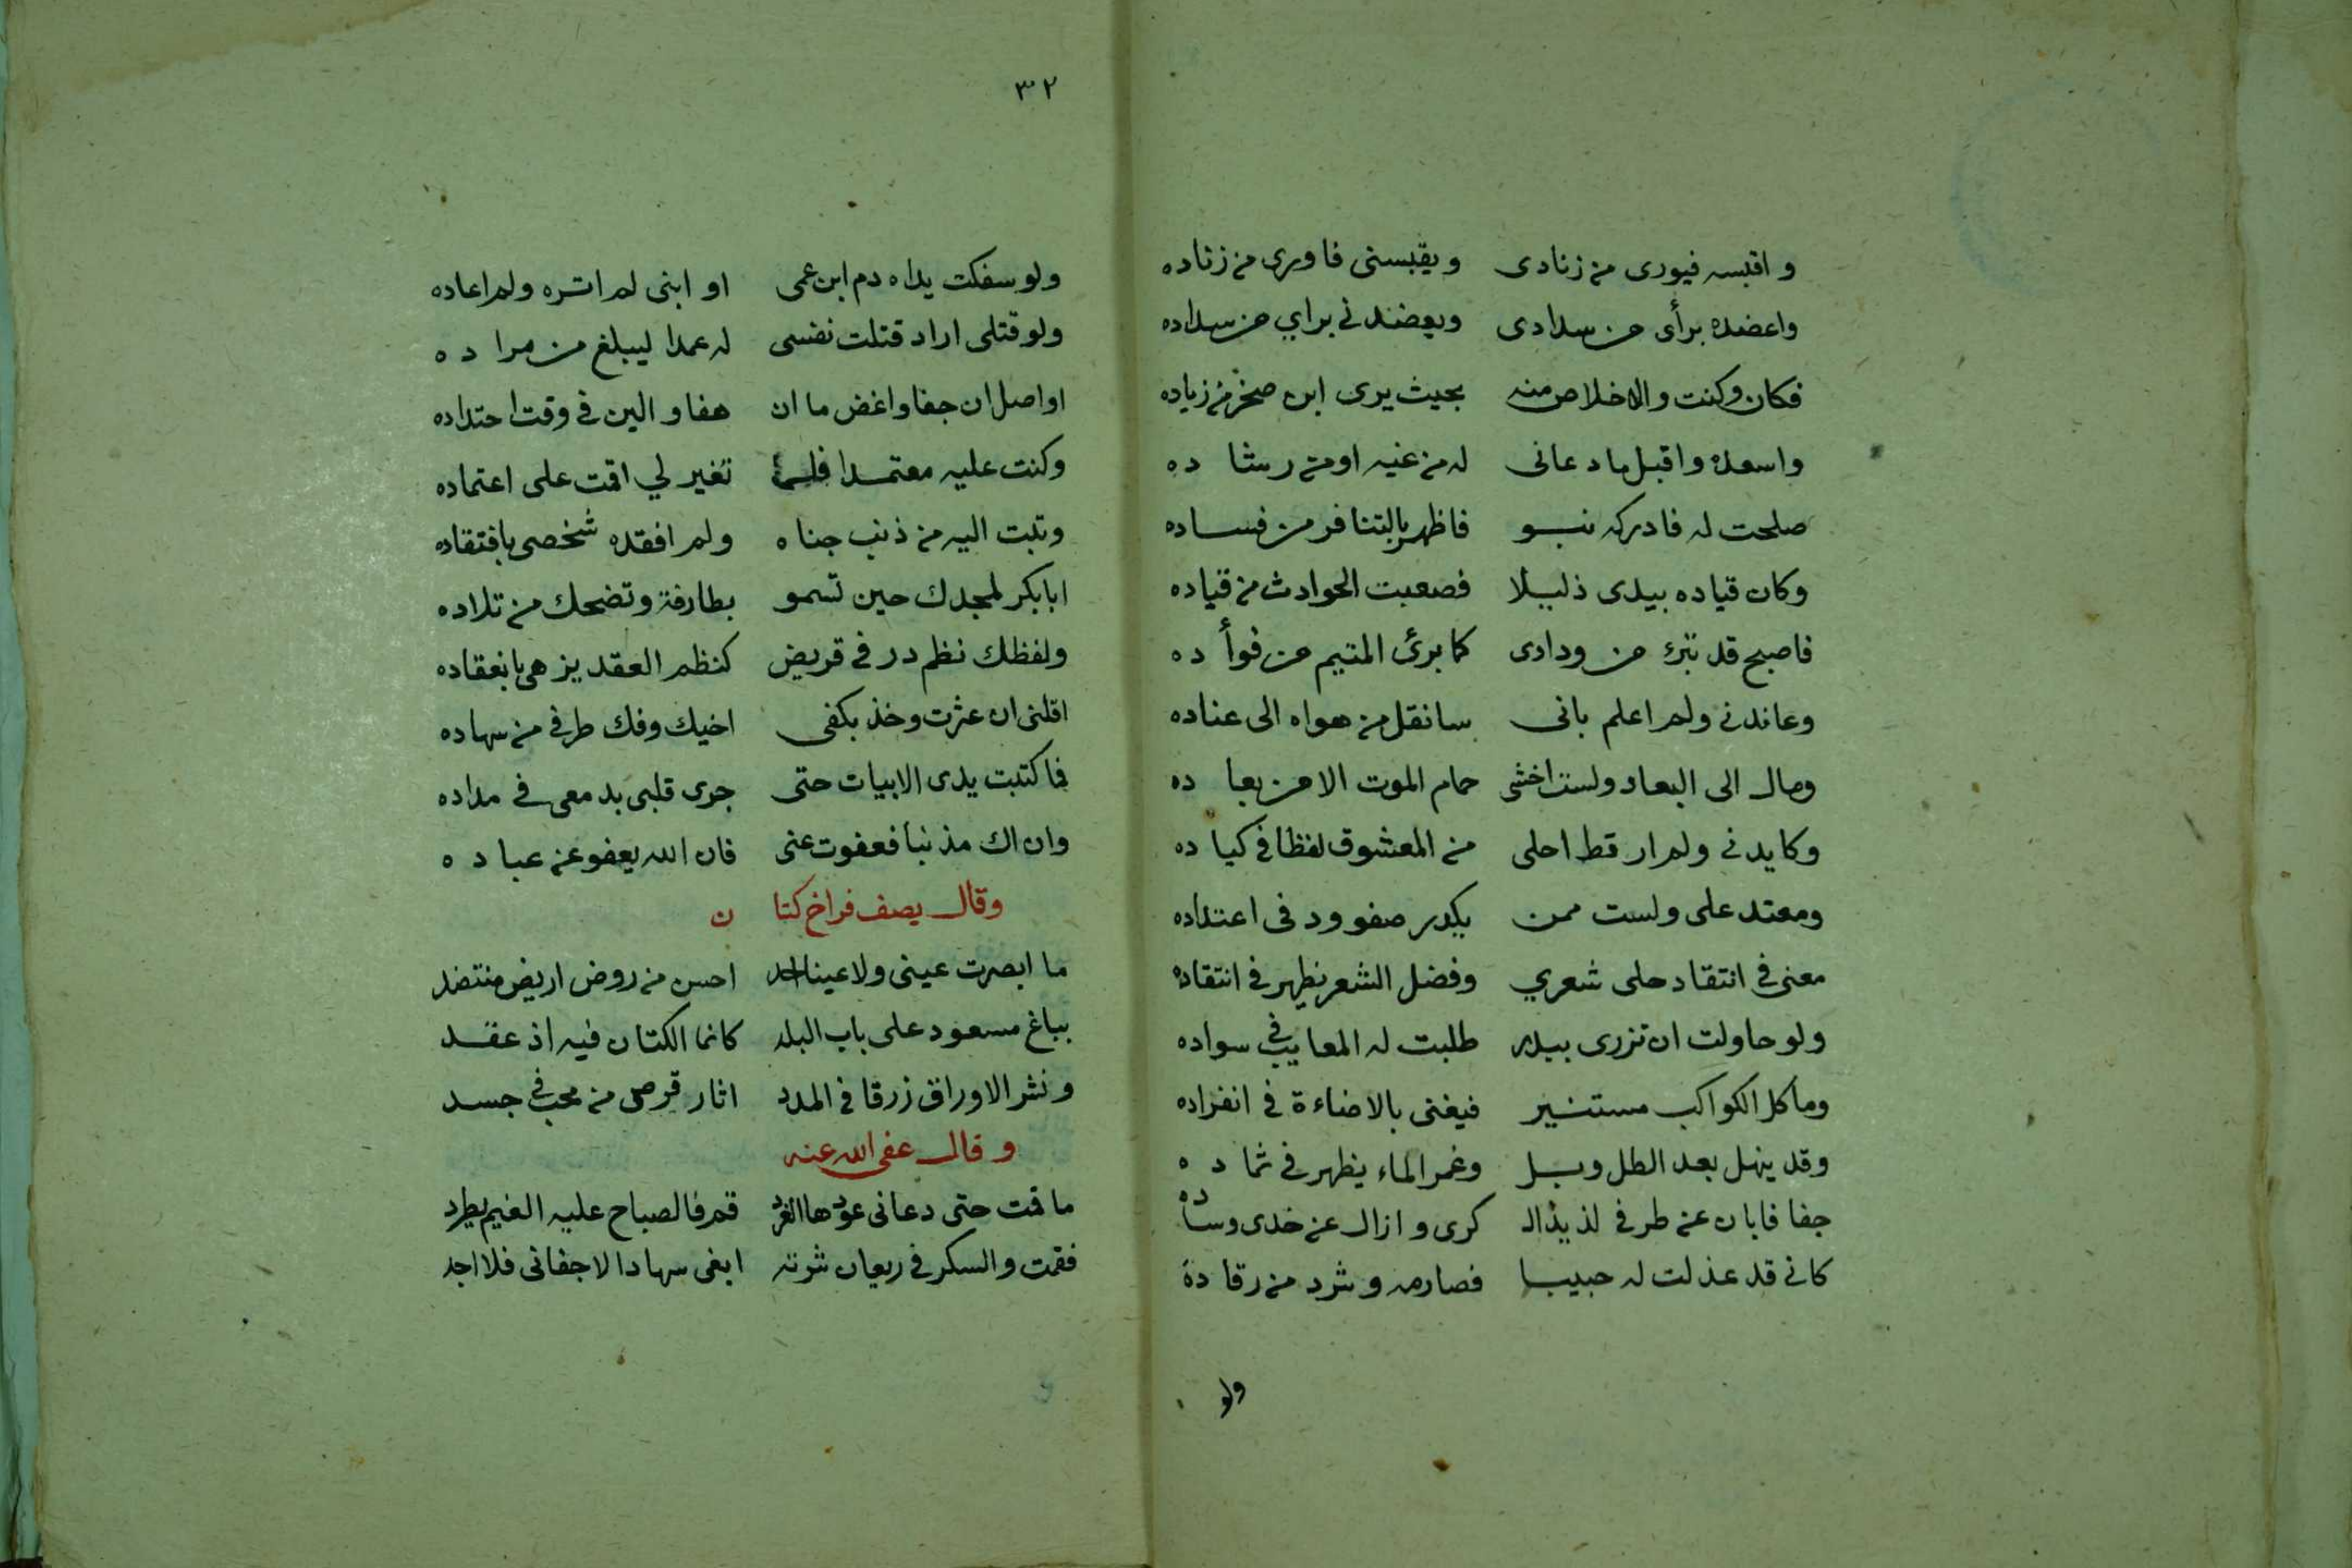 واقبسه فيورى من زنادى ويقبسنى فاورى من زناده
واعضده برأى من سدادى ويعضدنى براي من سداده
فكان وكنت والاخلاص منه بحيث يرى ابن صخر من زياده
واسعده واقبل ما دعانى له من غيه او من رشاده
صلحت له فادركه نبو فاظهر بالتنافر من فساده
وكان قياده بيدى ذليلا فصعبت الحوادث من قياده
فاصبح قد تبرء من ودادى كما برئ المتيم من فوأده
وعاندنى ولم اعلم بانى سانقل من هواه الى عناده
ومال الى البعاد ولست اخشى حمام الموت الا من بعاده
وكايدنى ولم ار قط احلى من المعشوق لفظا فى كياده
ومعتد على ولست ممن يكدر صفو ود فى اعتداده
معنى فى انتقاد حلى شعري وفضل الشعر يظهر فى انتقاده
ولو حاولت ان تزرى ببدر طلبت له المعايب فى سواده
وما كل الكواكب مستنير فيغنى بالاضاءة فى انفراده
وقد ينهل بعد الطل وبل وغمر الماء يظهر فى ثماده
جفا فابان عن طرفى لذيذ الـ كرى وازال عن خدى وساده
كانى قد عذلت له حبيبا فصارمه وشرد من رقاده
ولو
٣٢
ولو سفكت يداه دم ابن عمى او ابنى لم اتره ولم اعاده
ولو قتلى اراد قتلت نفسى له عمدا ليبلغ من مراده
اواصل ان جفا واغض ما ان هفا والين فى وقت احتداده
وكنت عليه معتمدا فلما تغير لي اقمت على اعتماده
وتبت اليه من ذنب جناه ولم افقده شخصى بافتقاده
ابا بكر لمجدك حين تسمو بطارفة وتضحك من تلاده
ولفظك نظم در فى قريض كنظم العقد يزهى بانعقاده
اقلنى ان عثرت وخذ بكفى اخيك وفك طرفى من سهاده
فما كتبت يدى الابيات حتى جرى قلبى بدمعى فى مداده
وان اك مذنبا فعفوت عنى فان الله يعفو عن عباده
وقال يصف فراخ كتان
ما ابصرت عينى ولا عينا احد احسن من روض اريض منتضد
بباغ مسعود على باب البلد كانما الكتان فيه اذ عقد
ونشر الاوراق زرقا فى المدد اثار قرص من محب فى جسد
وقال عفى الله عنه
ما قمت حتى دعانى عودها الغرد قم فالصباح عليه الغيم يطرد
فقمت والسكر فى ريعان شرته ابغى سهادا لاجفانى فلا اجد